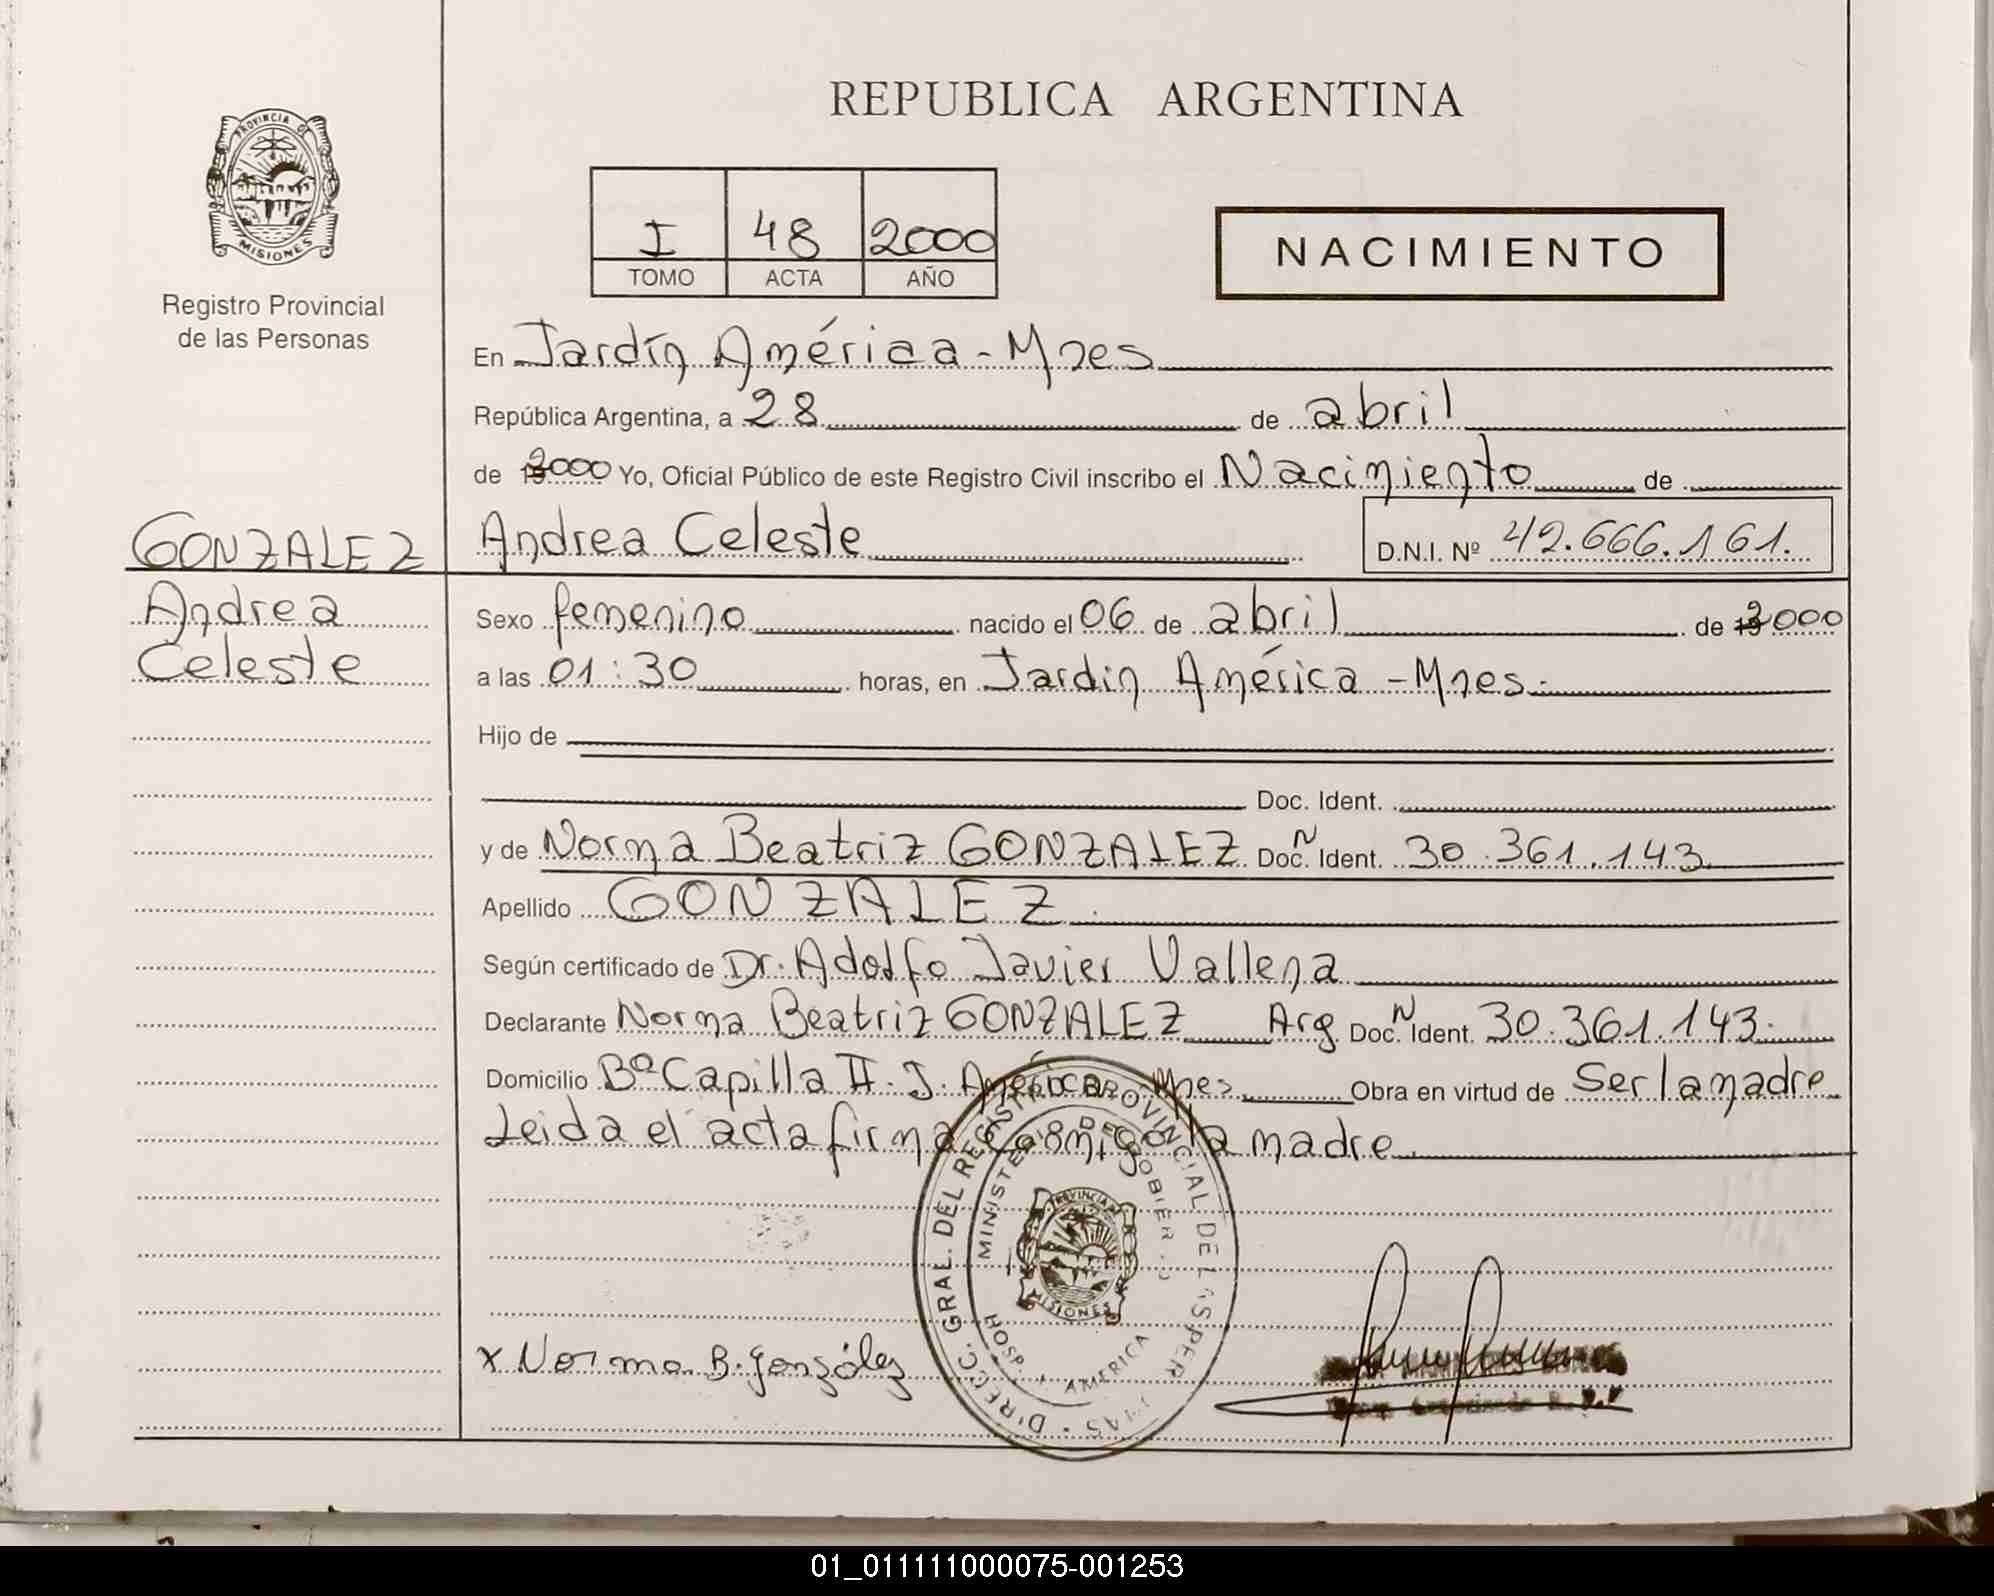 REPUBLICA ARGENTINA
PROVINCIA DE
MISIONES
Registro Provincial
de las Personas
I 48 2000
TOMO ACTA AÑO
NACIMIENTO
En Jardín América - Mnes
República Argentina, a 28 de abril
de 2000 Yo, Oficial Público de este Registro Civil inscribo el Nacimiento de
GONZALEZ Andrea Celeste D.N.I. Nº 42.666.161.
Andrea Sexo femenino nacido el 06 de abril de 2000
Celeste a las 01:30 horas, en Jardín América - Mnes.
Hijo de
Doc. Ident.
y de Norma Beatriz GONZALEZ Doc. N Ident. 30.361.143
Apellido GONZALEZ
Según certificado de Dr. Adolfo Javier Vallena
Declarante Norma Beatriz GONZALEZ Arg. Doc. N Ident. 30.361.143
Domicilio Bº Capilla II. J. América Mnes Obra en virtud de Ser la madre
Leida el acta firma conmigo la madre
DIRECC. GRAL. DEL REGISTRO PROVINCIAL DE LAS PER
MINISTERIO DE GOBIER
PROVINCIA
MISIONES
HOSP. AMERICA
x Norma B. González
01_011111000075-001253